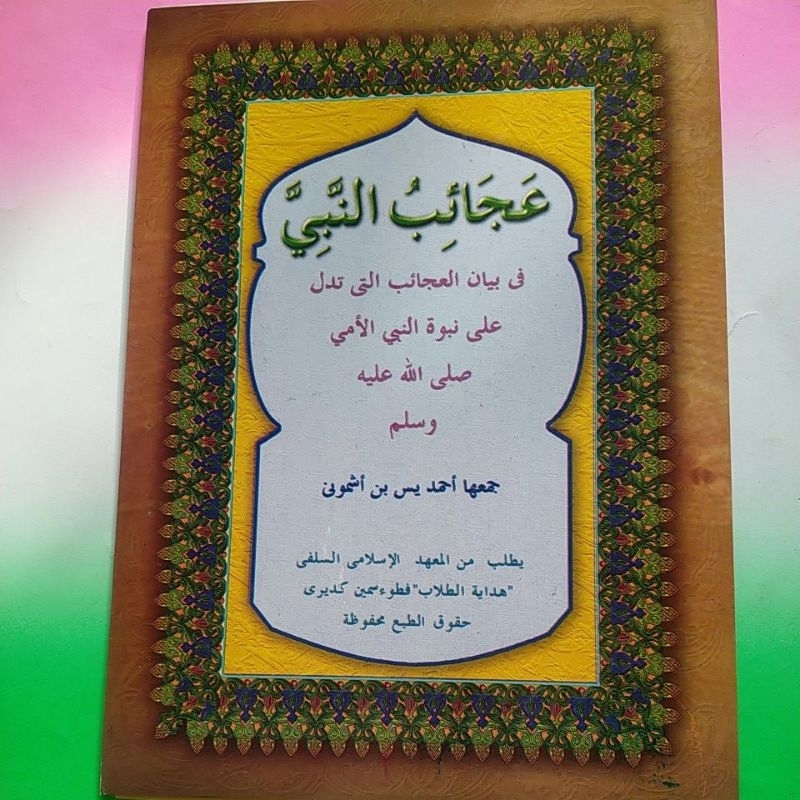 عَجَائِبُ النَّبِيَّ
فى بيان العجائب التى تدل
على نبوة النبي الأمي
صلى الله عليه
وسلم
جمعها أحمد يس بن أشمونى
يطلب من المعهد الإسلامى السلفى
"هداية الطلاب" فطوءسمين كديرى
حقوق الطبع محفوظة